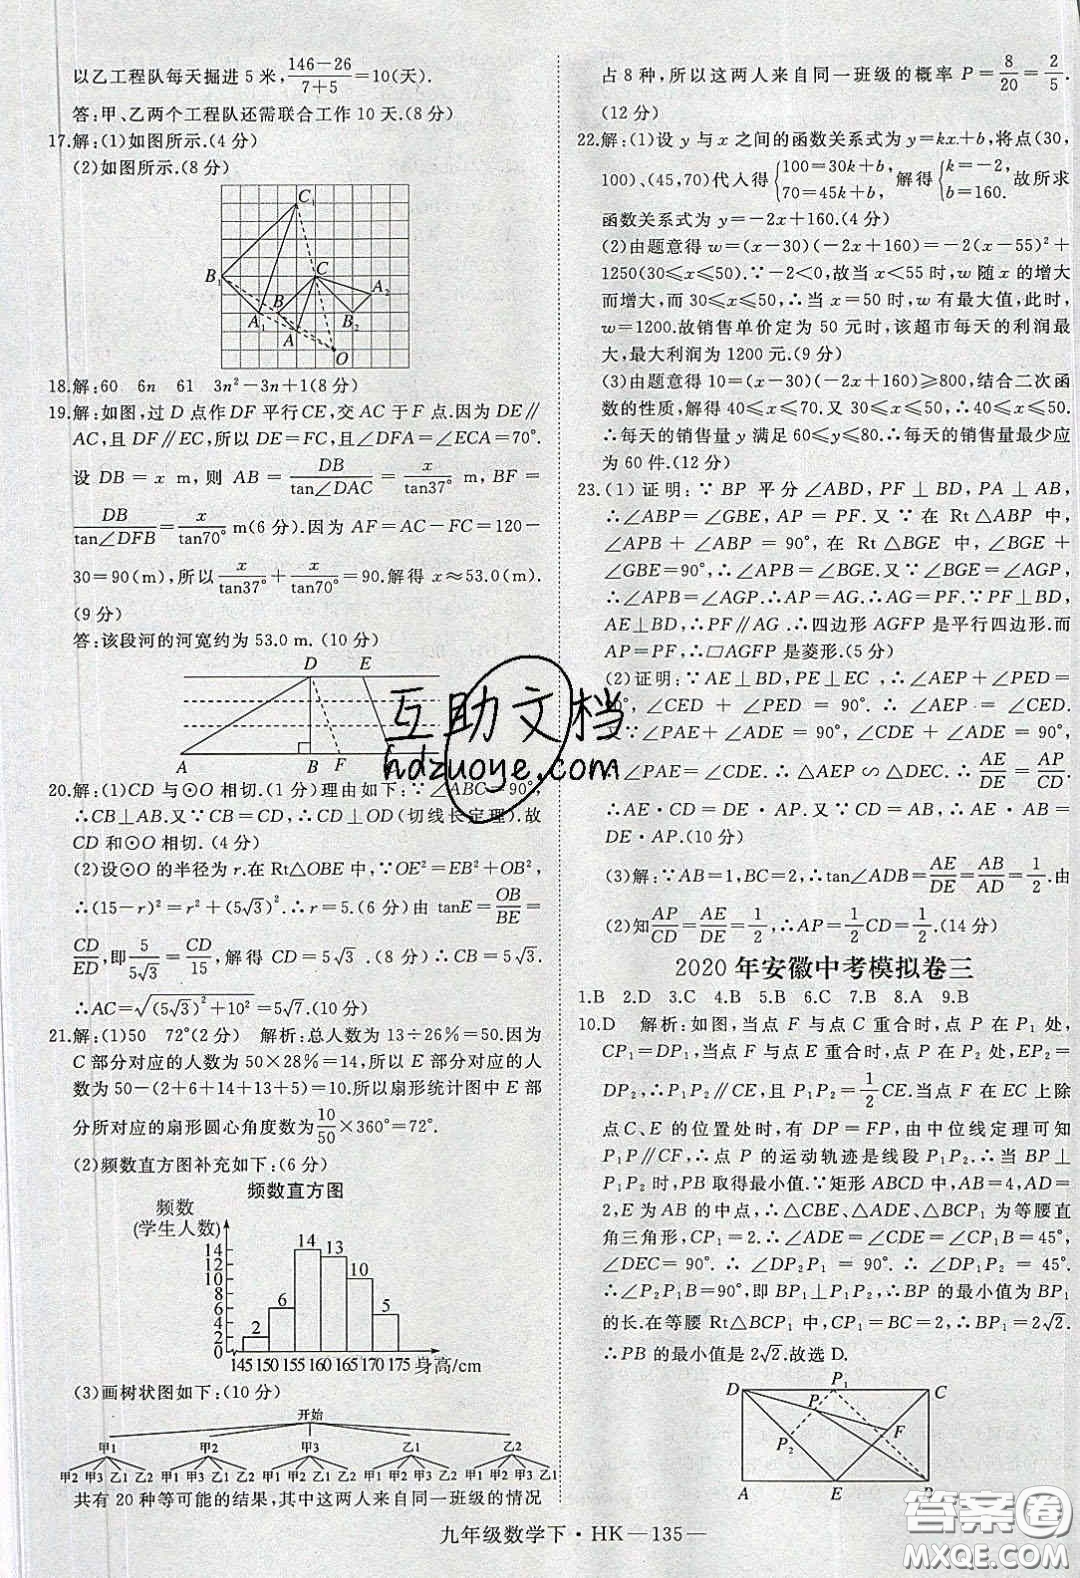 以乙工程队每天掘进 5 米,(146-26)/(7+5)=10(天).
答:甲、乙两个工程队还需联合工作 10 天.(8分)
17.解:(1)如图所示.(4分)
(2)如图所示.(8分)
C₁
B₁
C
B
A₂
A₁
B₂
A
O
18.解:60 6n 61 3n²-3n+1(8分)
19.解:如图,过 D 点作 DF 平行 CE,交 AC 于 F 点.因为 DE∥
AC,且 DF∥EC,所以 DE=FC,且∠DFA=∠ECA=70°.
设 DB=x m,则 AB=DB/tan∠DAC=x/tan37° m,BF=
DB/tan∠DFB=x/tan70° m(6分).因为 AF=AC-FC=120-
30=90(m),所以 x/tan37°+x/tan70°=90.解得 x≈53.0(m).
(9分)
答:该段河的河宽约为 53.0 m.(10分)
D E
A B F
20.解:(1)CD 与⊙O 相切.(1分)理由如下:∵∠ABC=90°,
∴CB⊥AB.又∵CB=CD,∴CD⊥OD(切线长定理).故
CD 和⊙O 相切.(4分)
(2)设⊙O 的半径为 r.在 Rt△OBE 中,∵OE²=EB²+OB²,
∴(15-r)²=r²+(5√3)².∴r=5.(6分)由 tanE=OB/BE=
CD/ED,即5/5√3=CD/15,解得 CD=5√3.(8分)
∴AC=√((5√3)²+10²)=5√7.(10分)
21.解:(1)50 72°(2分) 解析:总人数为 13÷26%=50.因为
C 部分对应的人数为 50×28%=14,所以 E 部分对应的人
数为 50-(2+6+14+13+5)=10.所以扇形统计图中 E 部
分所对应的扇形圆心角度数为10/50×360°=72°.
(2)频数直方图补充如下:(6分)
频数直方图
频数
(学生人数)
14
12
10
8
6
4
2
0
2 6 14 13 10 5
145 150 155 160 165 170 175 身高/cm
(3)画树状图如下:(10分)
开始
甲1 甲2 甲3 乙1 乙2
甲2 甲3 乙1 乙2 甲1 甲3 乙1 乙2 甲1 甲2 乙1 乙2 甲1 甲2 甲3 乙2 甲1 甲2 甲3 乙1
共有 20 种等可能的结果,其中这两人来自同一班级的情况
占 8 种,所以这两人来自同一班级的概率 P=8/20=2/5.
(12分)
22.解:(1)设 y 与 x 之间的函数关系式为 y=kx+b,将点(30,
100)、(45,70)代入得{100=30k+b, 70=45k+b,解得{k=-2, b=160.故所求
函数关系式为 y=-2x+160.(4分)
(2)由题意得 w=(x-30)(-2x+160)=-2(x-55)²+
1250(30≤x≤50).∵-2<0,故当 x<55 时,w 随 x 的增大
而增大,而 30≤x≤50,∴当 x=50 时,w 有最大值,此时,
w=1200.故销售单价定为 50 元时,该超市每天的利润最
大,最大利润为 1200 元.(9分)
(3)由题意得(x-30)(-2x+160)≥800,结合二次函
数的性质,解得 40≤x≤70.又∵30≤x≤50,∴40≤x≤50.
∴每天的销售量 y 满足 60≤y≤80.∴每天的销售量最少应
为 60 件.(12分)
23.(1)证明:∵BP 平分∠ABD,PF⊥BD,PA⊥AB,
∴∠ABP=∠GBE,AP=PF.又∵在 Rt△ABP 中,
∠APB+∠ABP=90°,在 Rt△BGE 中,∠BGE+
∠GBE=90°,∴∠APB=∠BGE.又∵∠BGE=∠AGP,
∴∠APB=∠AGP.∴AP=AG.∴AG=PF.∵PF⊥BD,
AE⊥BD,∴PF∥AG.∴四边形 AGFP 是平行四边形.而
AP=PF,∴□AGFP 是菱形.(5分)
(2)证明:∵AE⊥BD,PE⊥EC,∴∠AEP+∠PED=
∠CED+∠PED=90°,∴∠AEP=∠CED.
∵∠PAE+∠ADE=90°,∠CDE+∠ADE=90°,
∴∠PAE=∠CDE.∴△AEP∽△DEC.∴AE/DE=AP/CD.
∴AE·CD=DE·AP.又∵CD=AB,∴AE·AB=
DE·AP.(10分)
(3)解:∵AB=1,BC=2,∴tan∠ADB=AE/DE=AB/AD=1/2.由
(2)知AP/CD=AE/DE=1/2,∴AP=1/2CD=1/2.(14分)
2020 年安徽中考模拟卷三
1.B 2.D 3.C 4.B 5.B 6.B 7.B 8.A 9.B
10.D 解析:如图,当点 F 与点 C 重合时,点 P 在 P₁ 处,
CP₁=DP₁,当点 F 与点 E 重合时,点 P 在 P₂ 处,EP₂=
DP₂,∴P₁P₂∥CE,且 P₁P₂=1/2CE.当点 F 在 EC 上除
点C、E 的位置处时,有 DP=FP,由中位线定理可知
P₁P∥CF,∴点 P 的运动轨迹是线段 P₁P₂,∴当 BP⊥
P₁P₂ 时,PB 取得最小值.∵矩形 ABCD 中,AB=4,AD=
2,E 为 AB 的中点,∴△CBE、△ADE、△BCP₁ 为等腰直
角三角形,CP₁=2.∴∠ADE=∠CDE=∠CP₁B=45°,
∠DEC=90°.∴∠DP₂P₁=90°.∴∠DP₁P₂=45°.
∴∠P₂P₁B=90°,即 BP₁⊥P₁P₂,∴BP 的最小值为 BP₁
的长.在等腰 Rt△BCP₁ 中,CP₁=BC=2,∴BP₁=2√2.
∴PB 的最小值是 2√2.故选 D.
D P₁ C
P
F
P₂
A E B
互助文档
hdzuoye.com
答案圈
MXQE.COM
九年级数学下·HK—135—